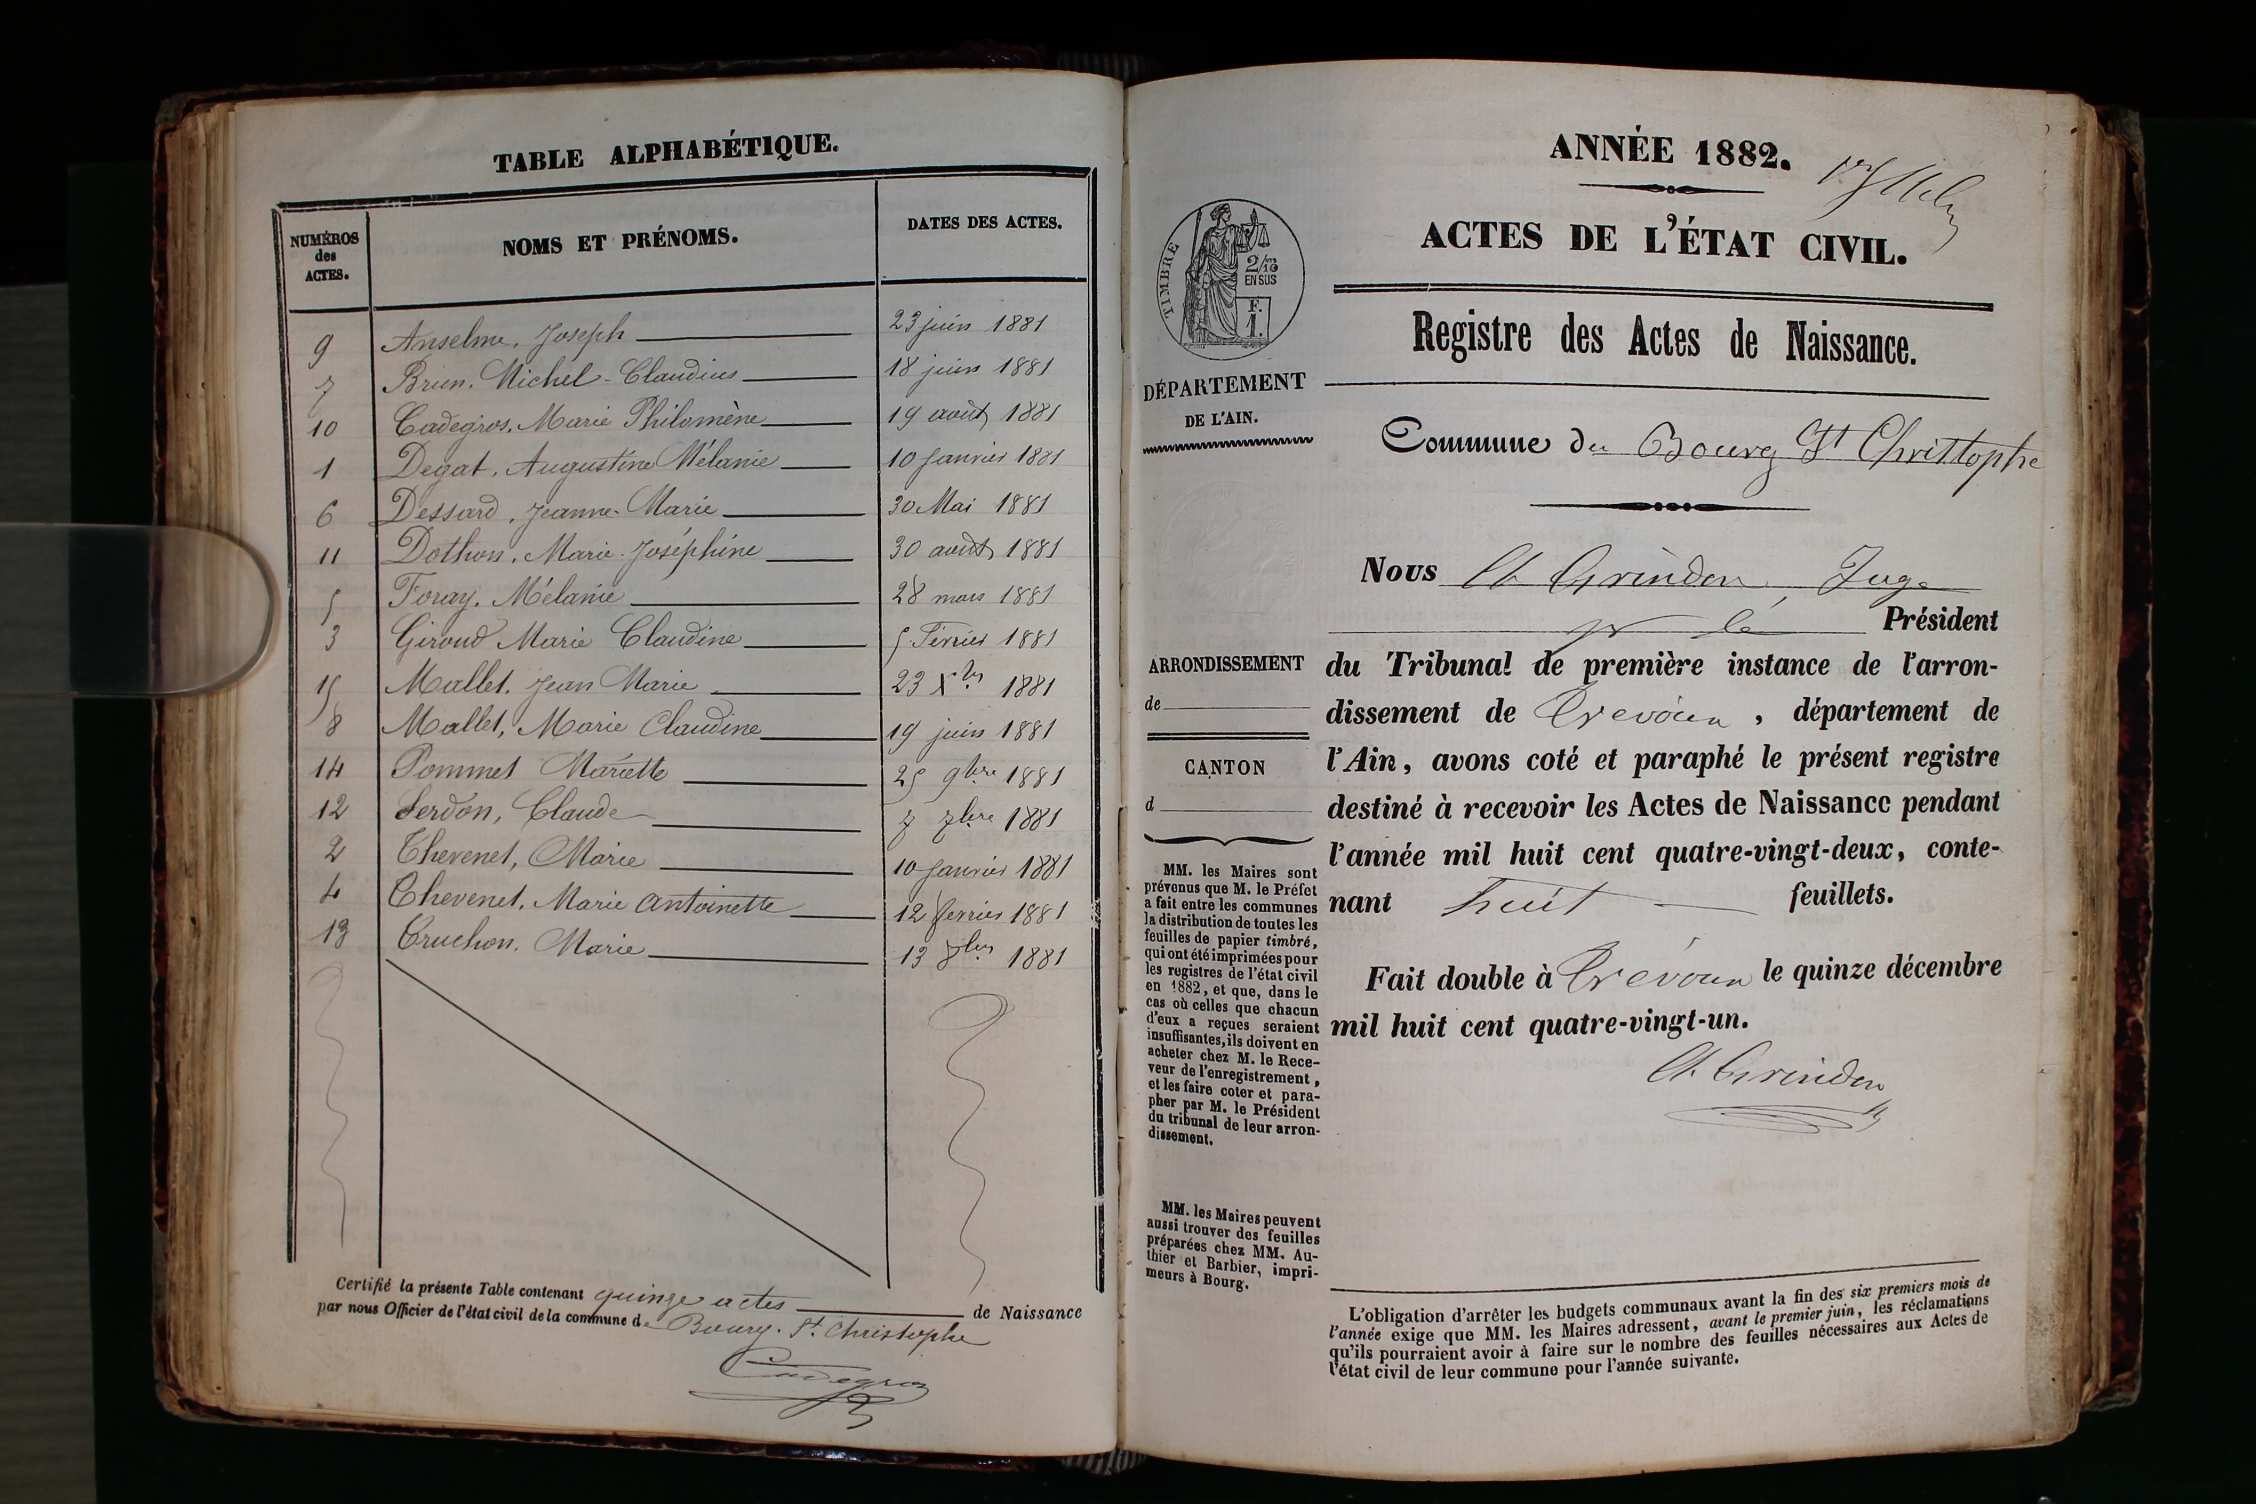 TABLE ALPHABÉTIQUE.
NUMÉROS des ACTES. NOMS ET PRÉNOMS. DATES DES ACTES.
9 Anselme, Joseph 23 juin 1881
7 Brun, Michel-Claudius 18 juin 1881
10 Cadegros, Marie Philomène 19 août 1881
1 Degat, Augustine Mélanie 10 Janvier 1881
6 Dessard, Jeanne-Marie 30 Mai 1881
11 Dothon, Marie-Joséphine 30 août 1881
5 Foray, Mélanie 28 mars 1881
3 Giroud Marie Claudine 5 Février 1881
15 Mallet, Jean Marie 23 Xbre 1881
8 Mallet, Marie Claudine 19 juin 1881
14 Pommet Mariette 25 9bre 1881
12 Serdon, Claude 7 7bre 1881
2 Thevenet, Marie 10 Janvier 1881
4 Thevenet, Marie Antoinette 12 fevrier 1881
13 Truchon, Marie 13 8bre 1881
Certifié la présente Table contenant quinze actes de Naissance
par nous Officier de l'état civil de la commune de Bourg-St Christophe
Cadegros
ANNÉE 1882.
ACTES DE L'ÉTAT CIVIL.
TIMBRE
2/10
EN SUS
F.
1.
Registre des Actes de Naissance.
DÉPARTEMENT
DE L'AIN.
Commune du Bourg St Christophe
Nous Ch Grindon, Juge
pr le Président
du Tribunal de première instance de l'arron-
dissement de Trévoux, département de
l'Ain, avons coté et paraphé le présent registre
destiné à recevoir les Actes de Naissance pendant
l'année mil huit cent quatre-vingt-deux, conte-
nant huit feuillets.
Fait double à Trévoux le quinze décembre
mil huit cent quatre-vingt-un.
Ch Grindon
ARRONDISSEMENT
de
CANTON
d
MM. les Maires sont
prévenus que M. le Préfet
a fait entre les communes
la distribution de toutes les
feuilles de papier timbré,
qui ont été imprimées pour
les registres de l'état civil
en 1882, et que, dans le
cas où celles que chacun
d'eux a reçues seraient
insuffisantes, ils doivent en
acheter chez M. le Rece-
veur de l'enregistrement,
et les faire coter et para-
pher par M. le Président
du tribunal de leur arron-
dissement.
MM. les Maires peuvent
aussi trouver des feuilles
préparées chez MM. Au-
thier et Barbier, impri-
meurs à Bourg.
L'obligation d'arrêter les budgets communaux avant la fin des six premiers mois de
l'année exige que MM. les Maires adressent, avant le premier juin, les réclamations
qu'ils pourraient avoir à faire sur le nombre des feuilles nécessaires aux Actes de
l'état civil de leur commune pour l'année suivante.